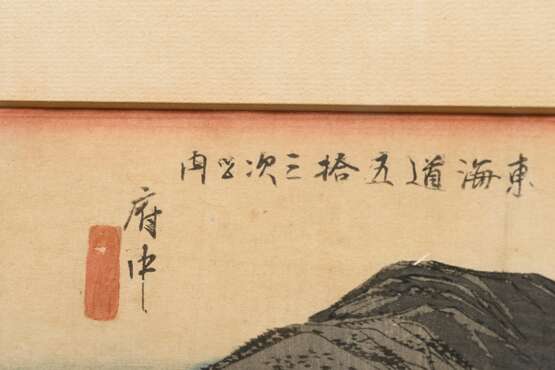 東海道五拾三次之内
府中